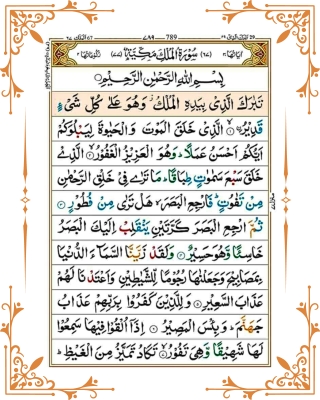 ٧٨٩ 789
سُوْرَةُ الْمُلْكِ مَكِّيَّةٌ
بِسْمِ اللهِ الرَّحْمٰنِ الرَّحِيْمِ
تَبٰرَكَ الَّذِيْ بِيَدِهِ الْمُلْكُ ۫ وَهُوَ عَلٰى كُلِّ شَيْءٍ
قَدِيْرٌ ۙ الَّذِيْ خَلَقَ الْمَوْتَ وَالْحَيٰوةَ لِيَبْلُوَكُمْ
اَيُّكُمْ اَحْسَنُ عَمَلًا ؕ وَهُوَ الْعَزِيْزُ الْغَفُوْرُ ۙ الَّذِيْ
خَلَقَ سَبْعَ سَمٰوٰتٍ طِبَاقًا ؕ مَا تَرٰى فِيْ خَلْقِ الرَّحْمٰنِ
مِنْ تَفٰوُتٍ ؕ فَارْجِعِ الْبَصَرَ ۙ هَلْ تَرٰى مِنْ فُطُوْرٍ
ثُمَّ ارْجِعِ الْبَصَرَ كَرَّتَيْنِ يَنْقَلِبْ اِلَيْكَ الْبَصَرُ
خَاسِئًا وَّهُوَ حَسِيْرٌ وَلَقَدْ زَيَّنَّا السَّمَآءَ الدُّنْيَا
بِمَصَابِيْحَ وَجَعَلْنٰهَا رُجُوْمًا لِّلشَّيٰطِيْنِ وَاَعْتَدْنَا لَهُمْ
عَذَابَ السَّعِيْرِ وَلِلَّذِيْنَ كَفَرُوْا بِرَبِّهِمْ عَذَابُ
جَهَنَّمَ ؕ وَبِئْسَ الْمَصِيْرُ اِذَآ اُلْقُوْا فِيْهَا سَمِعُوْا
لَهَا شَهِيْقًا وَّهِيَ تَفُوْرُ ۙ تَكَادُ تَمَيَّزُ مِنَ الْغَيْظِ ؕ